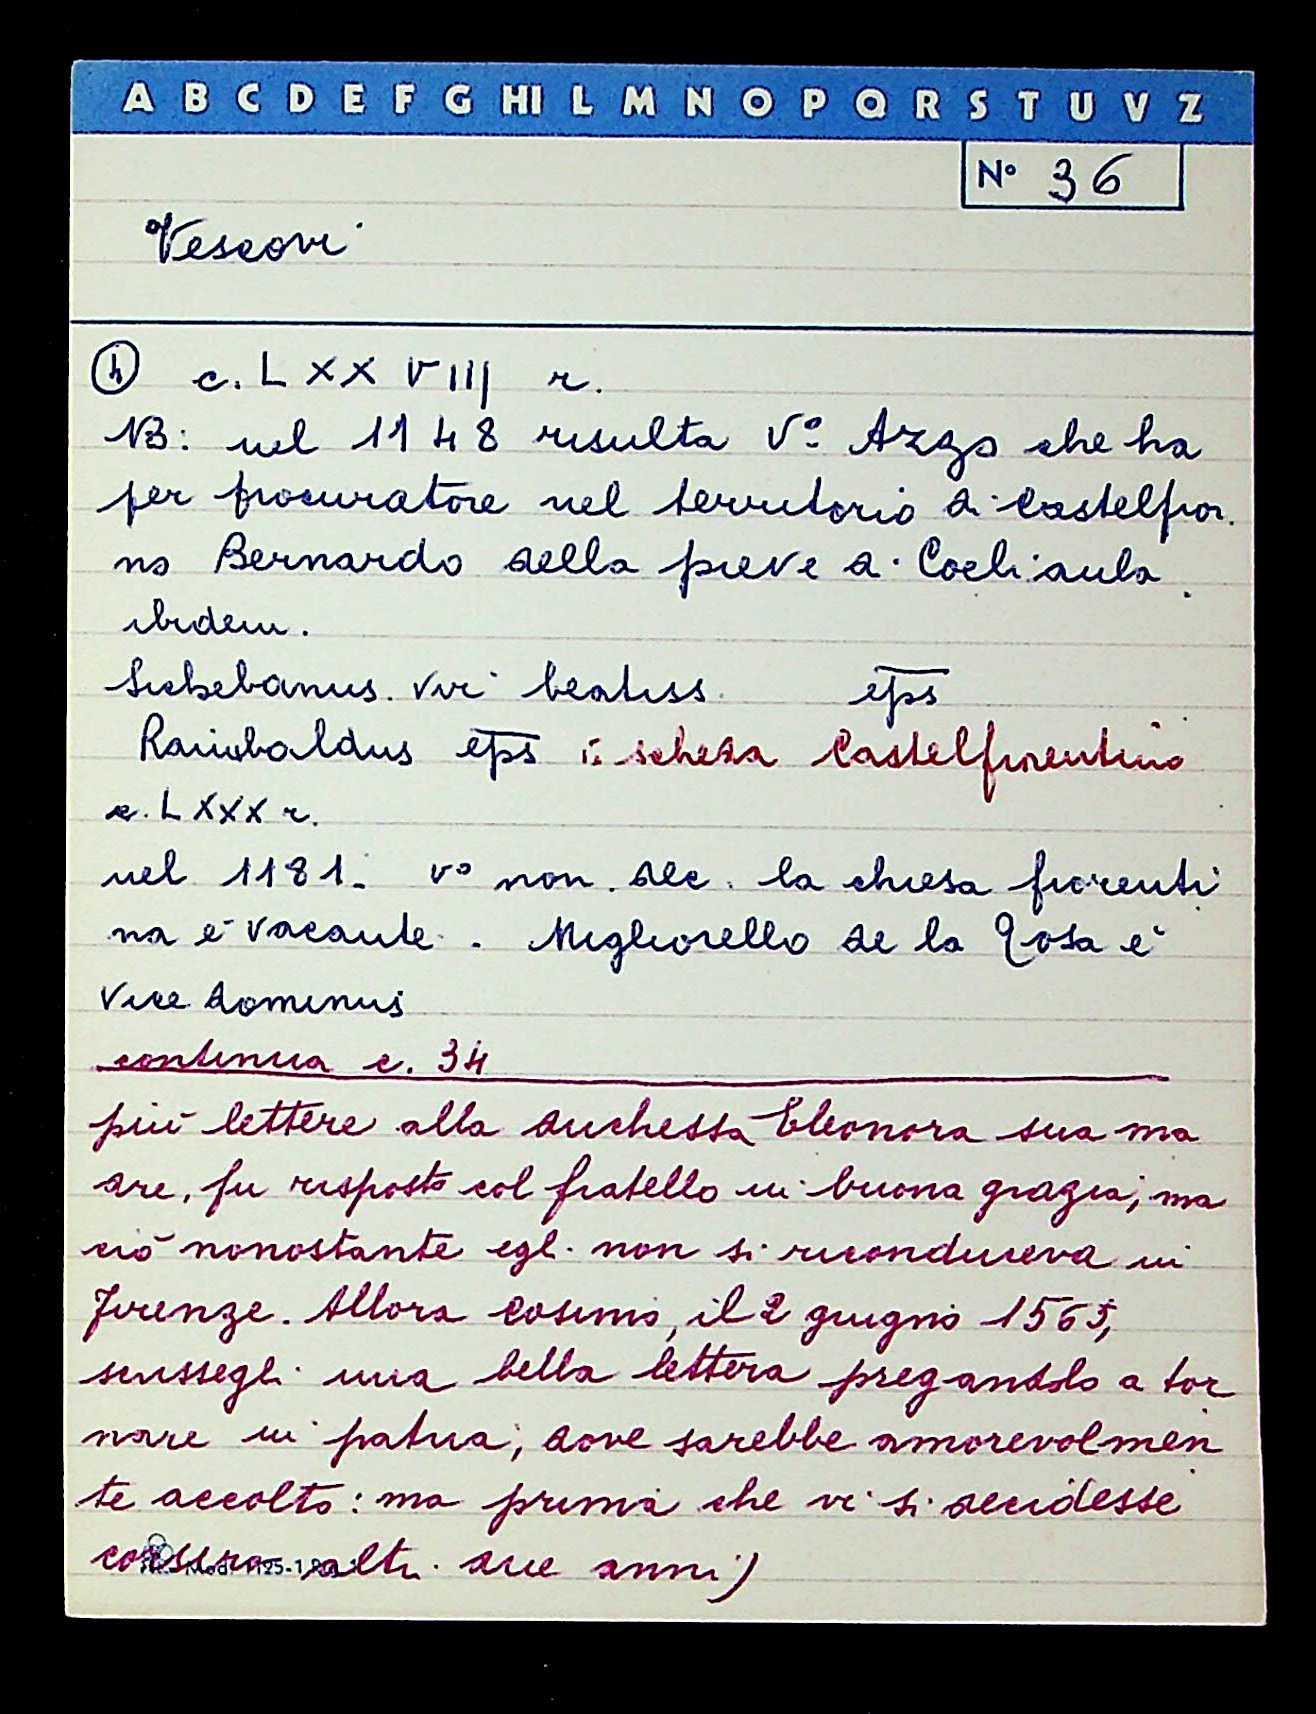 A B C D E F G HI L M N O P Q R S T U V Z
N° 36
Vescovi
h c. LXXVIII r.
NB: nel 1148 risulta V° Azzo che ha
per procuratore nel territorio di Castelfior.
no Bernardo della pieve di Coeli aula.
ibidem.
Sichebanus. viri beatiss. eps
Raimbaldus eps v. scheda Castelfiorentino
c. LXXX r.
nel 1181. v° non. dec. la chiesa fiorenti
na è vacante. Migliorello de la Tosa è
Vice dominus
continua c. 34
più lettere alla duchessa Eleonora sua ma
dre, fu risposto col fratello in buona grazia; ma
ciò nonostante egli non si riconduceva in
Firenze. Allora Cosimo, il 2 giugno 1565,
scrissegli una bella lettera pregandolo a tor
nare in patria; dove sarebbe amorevolmen
te accolto: ma prima che vi si decidesse
corsero altri due anni)